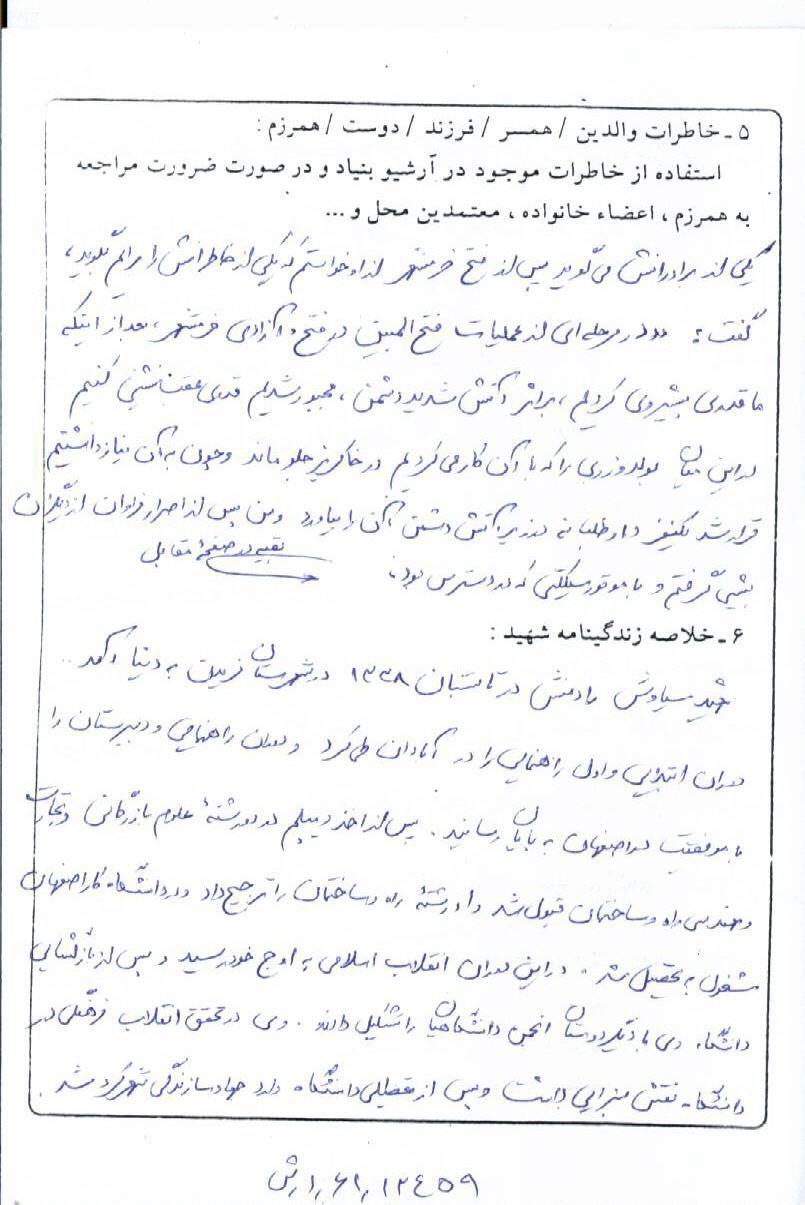 ۵ ـ خاطرات والدین / همسر / فرزند / دوست / همرزم :
استفاده از خاطرات موجود در آرشیو بنیاد و در صورت ضرورت مراجعه
به همرزم ، اعضاء خانواده ، معتمدین محل و ...
یکی از برادرانش می‌گوید پس از فتح خرمشهر از او خواستم که یکی از خاطراتش را برایم بگوید،
گفت: در مرحله‌ای از عملیات فتح المبین در فتح و آزادی خرمشهر، بعد از اینکه
ما قدری پیشروی کردیم، بر اثر آتش شدید دشمن، مجبور شدیم قدری عقب‌نشینی کنیم
در این میان بولدوزری را که با آن کار می‌کردیم در خاکریز جلو ماند و چون به آن نیاز داشتیم
قرار شد یکنفر داوطلبانه در زیر آتش دشمن آن را بیاورد و من پس از اصرار فراوان از دیگران
پیشی گرفتم و با موتورسیکلتی که در دسترس بود،
بقیه در صفحهٔ مقابل
۶ ـ خلاصه زندگینامه شهید :
شهید سیاوش در تابستان ۱۳۳۸ در شهرستان فریدن به دنیا آمد.
دوران ابتدایی و اول راهنمایی را در آبادان طی کرد و دوران راهنمایی و دبیرستان را
با موفقیت در اصفهان به پایان رسانید. پس از اخذ دیپلم در دو رشتهٔ علوم بازرگانی و تجارت
و مهندسی راه و ساختمان قبول شد و او رشتهٔ راه و ساختمان را ترجیح داد و در دانشگاه اصفهان
مشغول به تحصیل شد. در این دوران انقلاب اسلامی به اوج خود رسید و پس از بازگشایی
دانشگاه وی با دیگر دوستان انجمن دانشگاهیان را تشکیل دادند. وی در تحقق انقلاب فرهنگی در
دانشگاه نقش بسزایی داشت و پس از تعطیلی دانشگاه وارد جهاد سازندگی شهرکرد شد.
۱٫۶۱٫۱۲۴۵۹